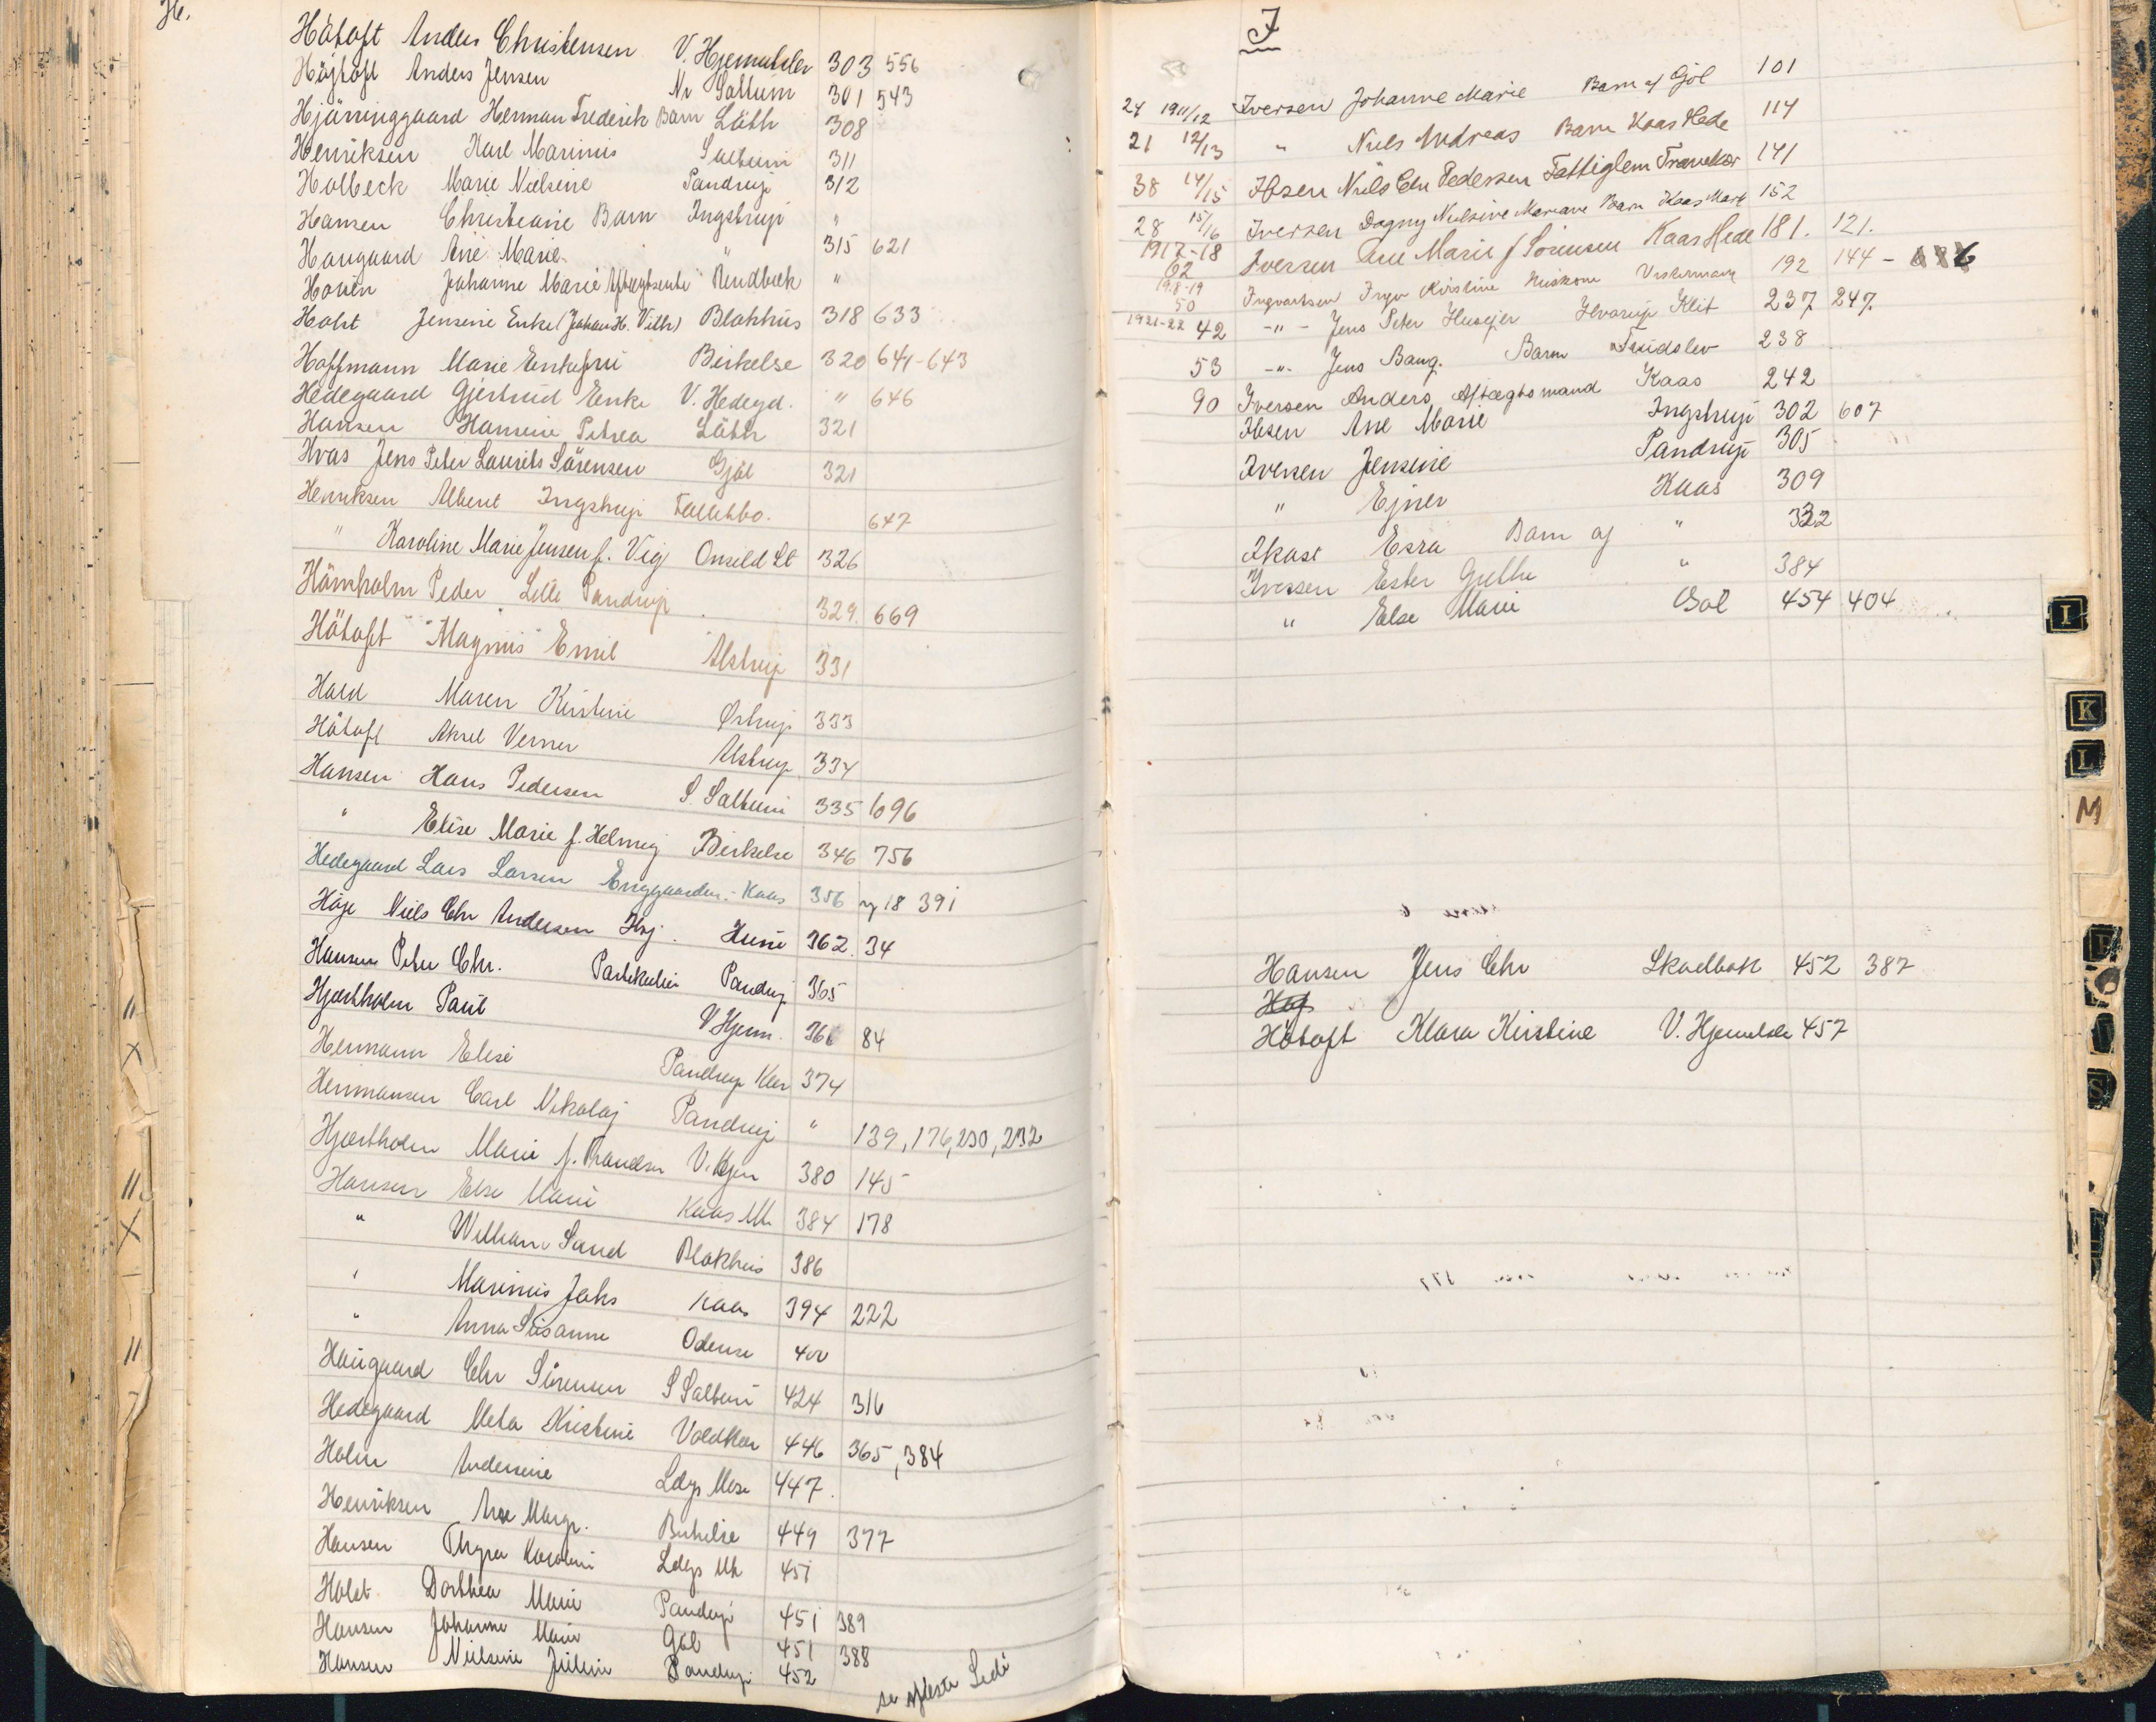 H.
Håtoft Anders Christensen V. Hjermitslev 303 556
Höjtoft Anders Jensen Nr Saltum 301 543
Hjörringgaard Herman Frederik Barn Låth 308
Henriksen Karl Marinus Saltum 311
Holbeck Marie Nielsine Pandrup 312
Hansen Christiane Barn Ingstrup "
Haugaard Ane Marie " 315 621
Johanne Marie Aftægtsenke Rendbæk "
Holst Jensine Enke (Johan H. Vilh) Blokhus 318 633
Hoffmann Marie Enkefru Birkelse 320 641-643
Hedegaard Gjertrud Enke V. Hedegd. " 646
Hansen Hansine Petrea Låth 321
Hvas Jens Peter Laurits Sörensen Gjöl 321
Henriksen Albert Ingstrup Fallitbo. 647
" Karoline Marie Jensen f. Vig Onsild St 326
Peder Lille Pandrup 329. 669
Håtoft Magnus Emil Alstrup 331
Hald Maren Kirstine Östrup 333
Håtoft Aksel Verner Alstrup 334
Hansen Hans Pedersen S. Saltum 335 696
" Elise Marie f. Helmig Birkelse 346 756
Hedegaard Lars Larsen Enggaarden - Kaas 356 ny 18 391
Höje Niels Chr Andersen Hune 362. 34
Hansen Peter Chr. Partikulier Pandrup 365
Hjortholm Paul V Hjerm. 366 84
Hermann Elise Pandrup Kær 374
Hermansen Carl Nikolaj Pandrup " 139, 176, 230, 232
Hjortholm Marie f. V. Hjer 380 145
Hansen Else Marie Kaas Mk 384 178
" William Sand Blokhus 386
" Marinus Jaks Kaas 394 222
" Anna Susanne Odense 400
Haugaard Chr Sörensen S Saltum 424 316
Hedegaard Meta Kristine Voldkær 446 365, 384
Holm Andersine Ldgs Mose 447.
Henriksen Ane Margr. Birkelse 449 377
Hansen Thyra Karoline Ldgs Mk 451
Holst Dorthea Marie Pandrup 451 389
Hansen Johanne Marie Göl 451 388
Hansen Nielsine Juline Pandrup 452
se næste Side
I
24 1911/12 Iversen Johanne Marie Barn af Gjöl 101
21 12/13 " Niels Andreas Barn Kaas Hede 114
38 14/15 Ibsen Niels Chr Pedersen Fattiglem Tranekær 141
28 15/16 Iversen Dagny Nielsine Mariane Barn Kaas Mark 152
1917-18 62 Iversen Ane Marie f Sörensen Kaas Hede 181. 121.
1918-19 50 Ingvartsen Inger Kirstine Huskone Vestermark 192 144 -
1921-22 42 -"- Jens Peter Husejer Hvorup Klit 237 247.
53 -"- Jens Bang. Barn Tridslev 238
90 Iversen Anders, Aftægtsmand Kaas 242
Ibsen Ane Marie Ingstrup 302 607
Iversen Jensine Pandrup 305
" Ejner Kaas 309
Ikast Esra Barn af " 332
Iversen Ester Grethe " 384
" Else Marie Göl 454 404
Hansen Jens Chr Skovlbak 452 387
Håtoft Klara Kirstine V. Hjermitslev 457
I
K
L
M
S